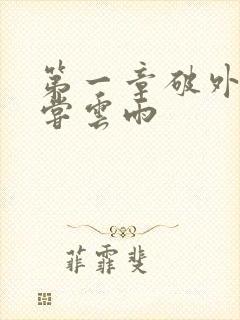 第一章破外
尝云雨
菲霏斐